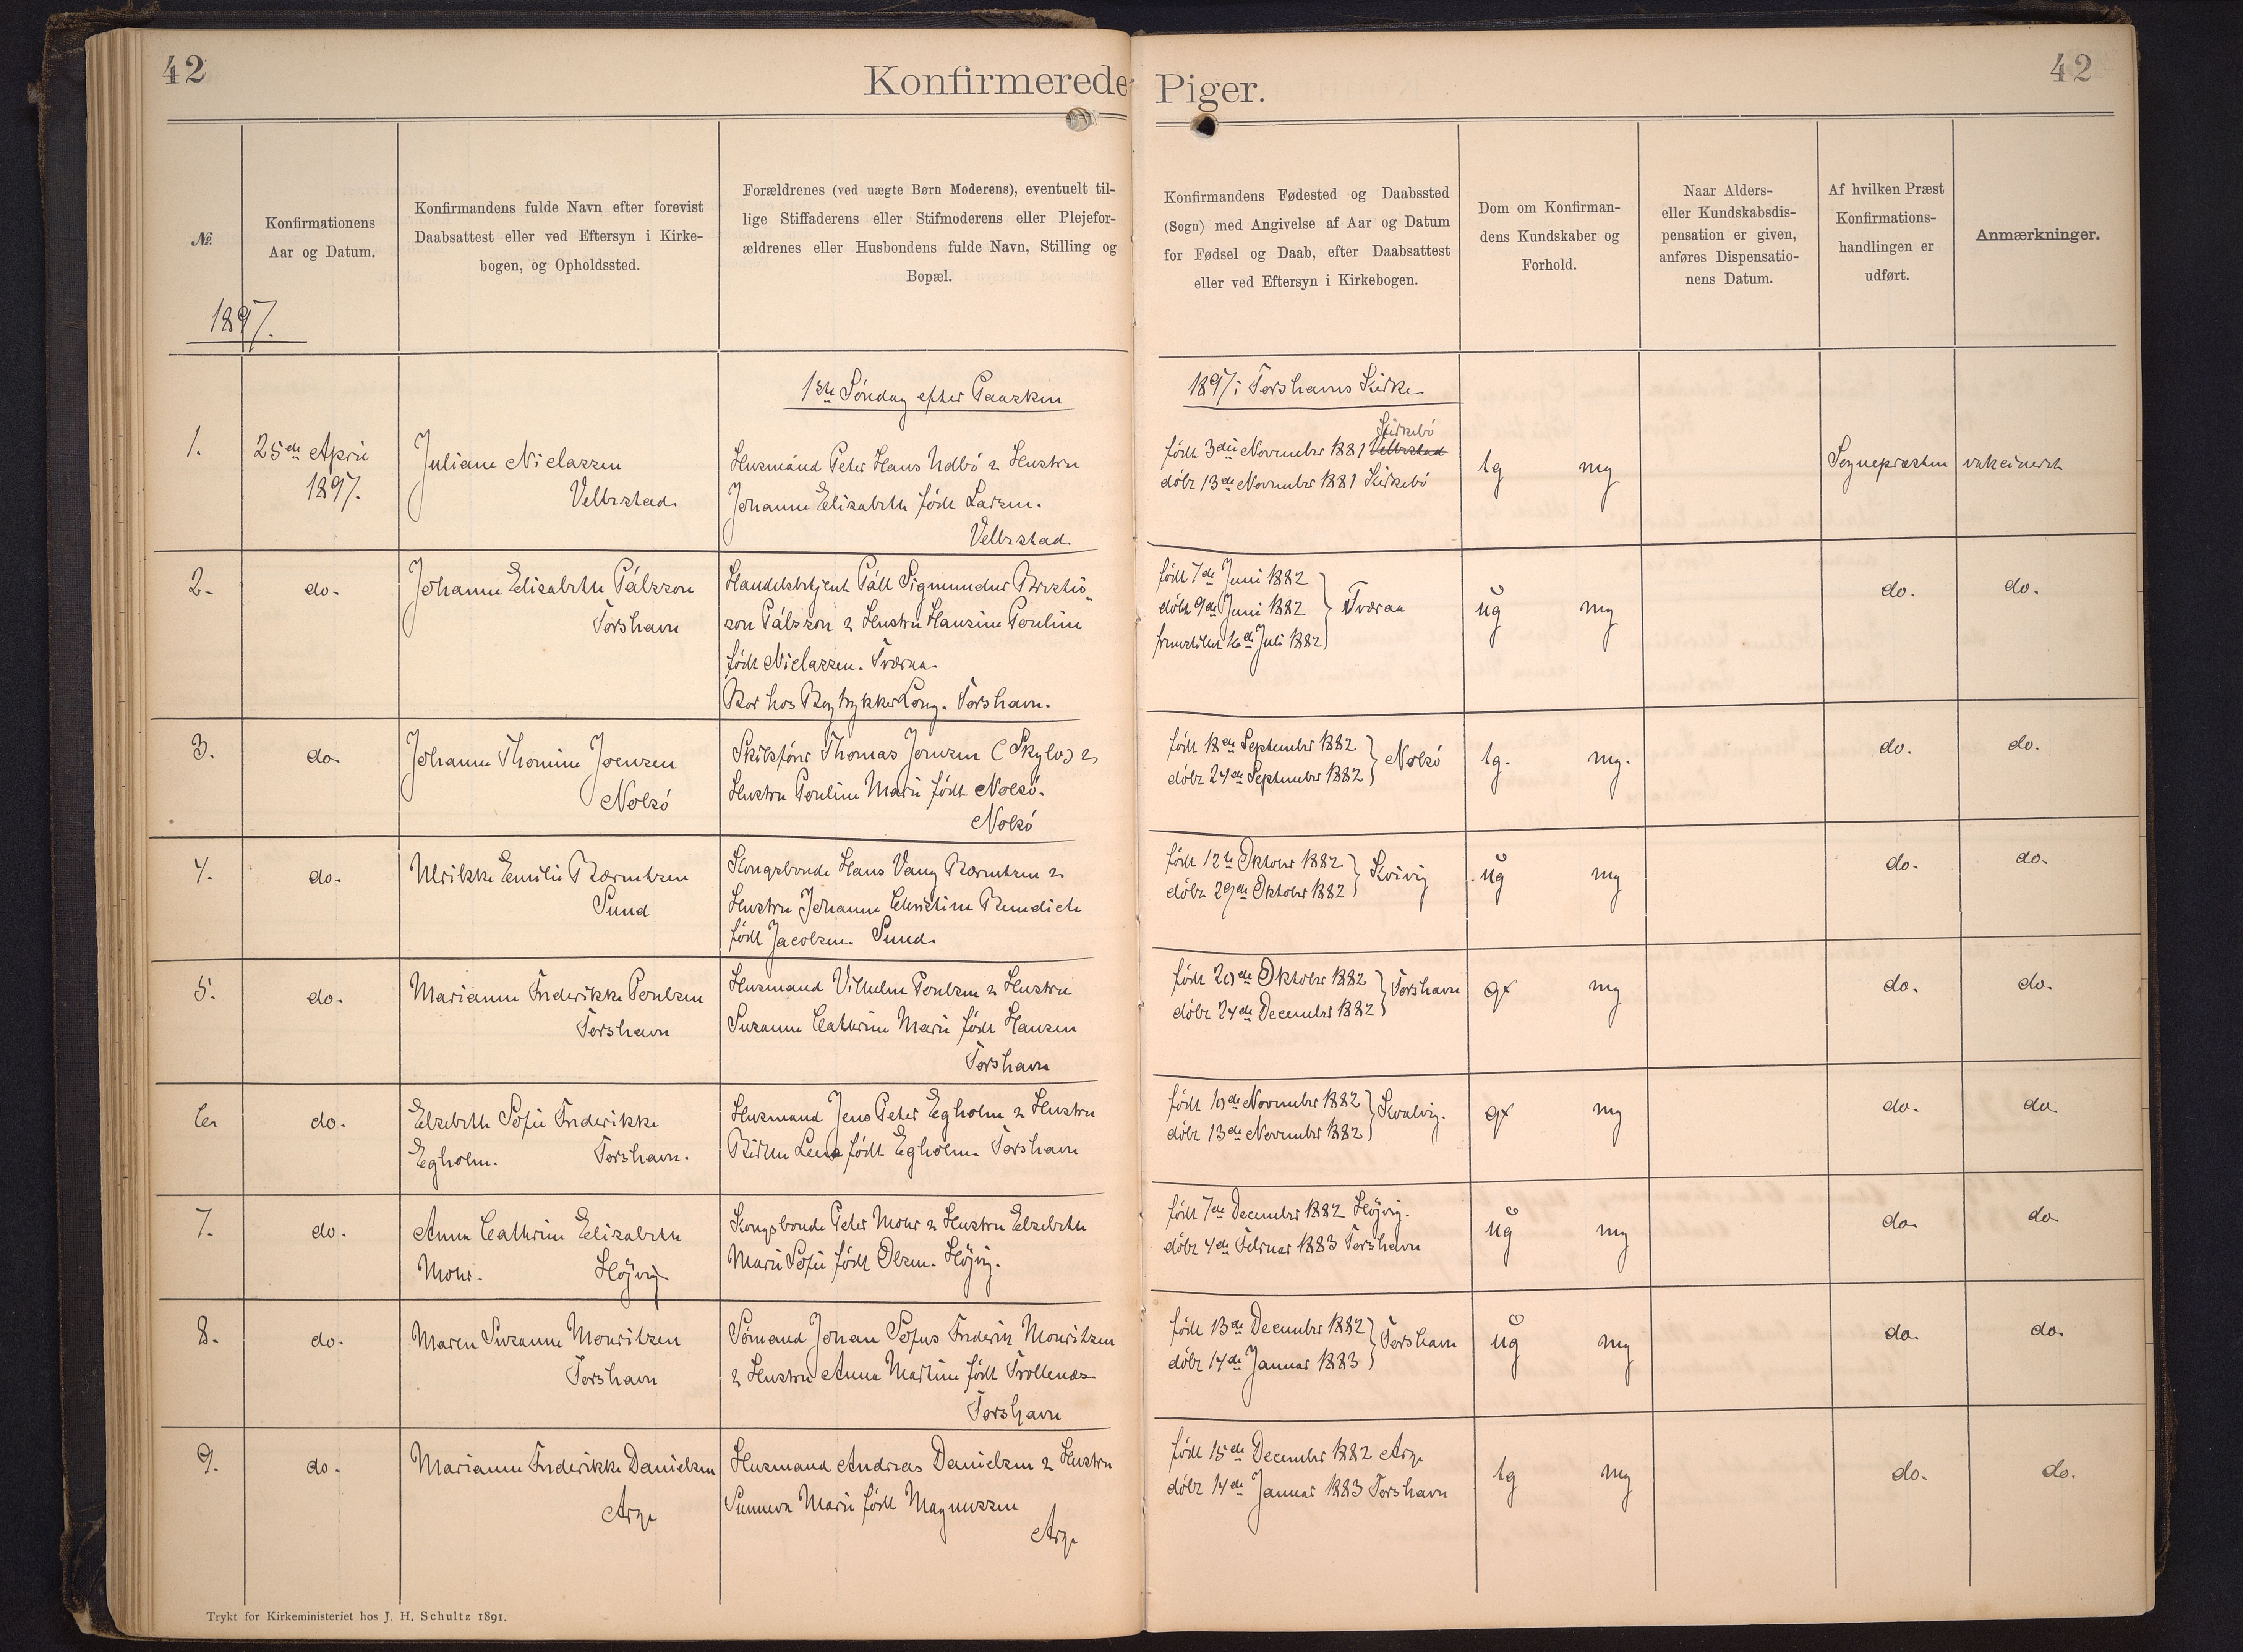 42
Konfirmerede Piger.
42
№.
Konfirmationens
Aar og Datum.
Konfirmandens fulde Navn efter forevist
Daabsattest eller ved Eftersyn i Kirke-
bogen, og Opholdssted.
Forældrenes (ved uægte Børn Moderens), eventuelt til-
lige Stiffaderens eller Stifmoderens eller Plejefor-
ældrenes eller Husbondens fulde Navn, Stilling og
Bopæl.
Konfirmandens Fødested og Daabssted
(Sogn) med Angivelse af Aar og Datum
for Fødsel og Daab, efter Daabsattest
eller ved Eftersyn i Kirkebogen.
Dom om Konfirman-
dens Kundskaber og
Forhold.
Naar Alders-
eller Kundskabsdis-
pensation er given,
anføres Dispensatio-
nens Datum.
Af hvilken Præst
Konfirmations-
handlingen er
udført.
Anmærkninger.
1897.
1ste Söndag efter Paasken
1897 i Torshavns Kirke
1.
25de April
1897.
Juliane Nielassen
Velbestad
Husmand Peter Hans Udbó & Hustru
Johanne Elisabeth födt Larsen.
Velbestad
Kirkebö
födt 3die November 1881 Velbestad
döbt 13de November 1881 Kirkebö
tg
mg
Sognepræsten
vakcineret
2.
do.
Johanne Elisabeth Pálsson
Torshavn
Handelsbetjent Páll Sigmundur
son Pálsson & Hustru Hansine Pouline
födt Nielassen. Tværaa.
Bor hos Bogtrykker Long. Torshavn.
födt 7de Juni 1882
döbt 9de Juni 1882
fremstillet 16de Juli 1882
Tværaa
ug
mg
do.
do.
3.
do.
Johanne Thomine Joensen
Nolsö
Skibsförer Thomas Joensen (Skylv) &
Hustru Pouline Marie födt Nolsö.
Nolsö
födt 18de September 1882
döbt 24de September 1882
Nolsö
tg.
mg.
do.
do.
4.
do.
Ulrikke Emilie Bærentsen
Sund
Kongsbonde Hans Vang Bærentsen &
Hustru Johanne Christine Benedicte
födt Jacobsen. Sund.
födt 12te Oktober 1882
döbt 29de Oktober 1882
Kvivig
ug
mg
do.
do.
5.
do.
Marianne Frederikke Poulsen
Torshavn
Husmand Vilhelm Poulsen & Hustru
Susanne Cathrine Marie födt Hansen
Torshavn
födt 20de Oktober 1882
döbt 24de December 1882
Torshavn
g+
mg
do.
do.
6.
do.
Elsebeth Sofie Frederikke
Egholm. Torshavn.
Husmand Jens Peter Egholm & Hustru
Birthe Lena födt Egholm. Torshavn
födt 10de November 1882
döbt 13de November 1882
Kvalvig.
g+
mg
do.
do
7.
do.
Anna Cathrine Elisabeth
Mohr. Höjvig
Kongsbonde Peter Mohr & Hustru Elsebeth
Marie Sofie födt Olsen. Höjvig.
födt 7de December 1882 Höjvig.
döbt 4de Februar 1883 Torshavn
ug
mg
do.
do
8.
do.
Maren Susanne Mouritsen
Torshavn
Sömand Johan Sofus Frederik Mouritsen
& Hustru Anna Martine födt Trollenæs
Torshavn
födt 13de December 1882
döbt 14de Januar 1883
Torshavn
ug
mg
do.
do.
9.
do.
Marianne Frederikke Danielsen
Arge
Husmand Andreas Danielsen & Hustru
Sunneva Marie födt Magnussen
Arge
födt 15de December 1882 Arge
döbt 14de Januar 1883 Torshavn
tg
mg
do.
do.
Trykt for Kirkeministeriet hos J. H. Schultz 1891.